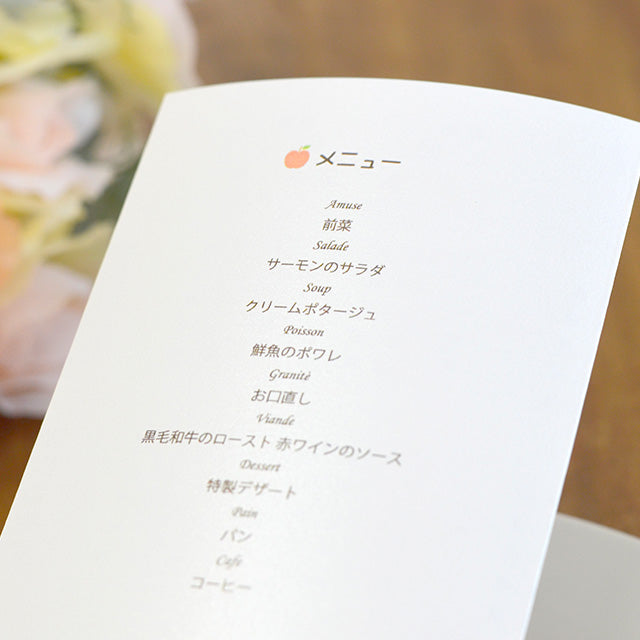 メニュー
Amuse
前菜
Salade
サーモンのサラダ
Soup
クリームポタージュ
Poisson
鮮魚のポワレ
Granité
お口直し
Viande
黒毛和牛のロースト 赤ワインのソース
Dessert
特製デザート
Pain
パン
Cafe
コーヒー